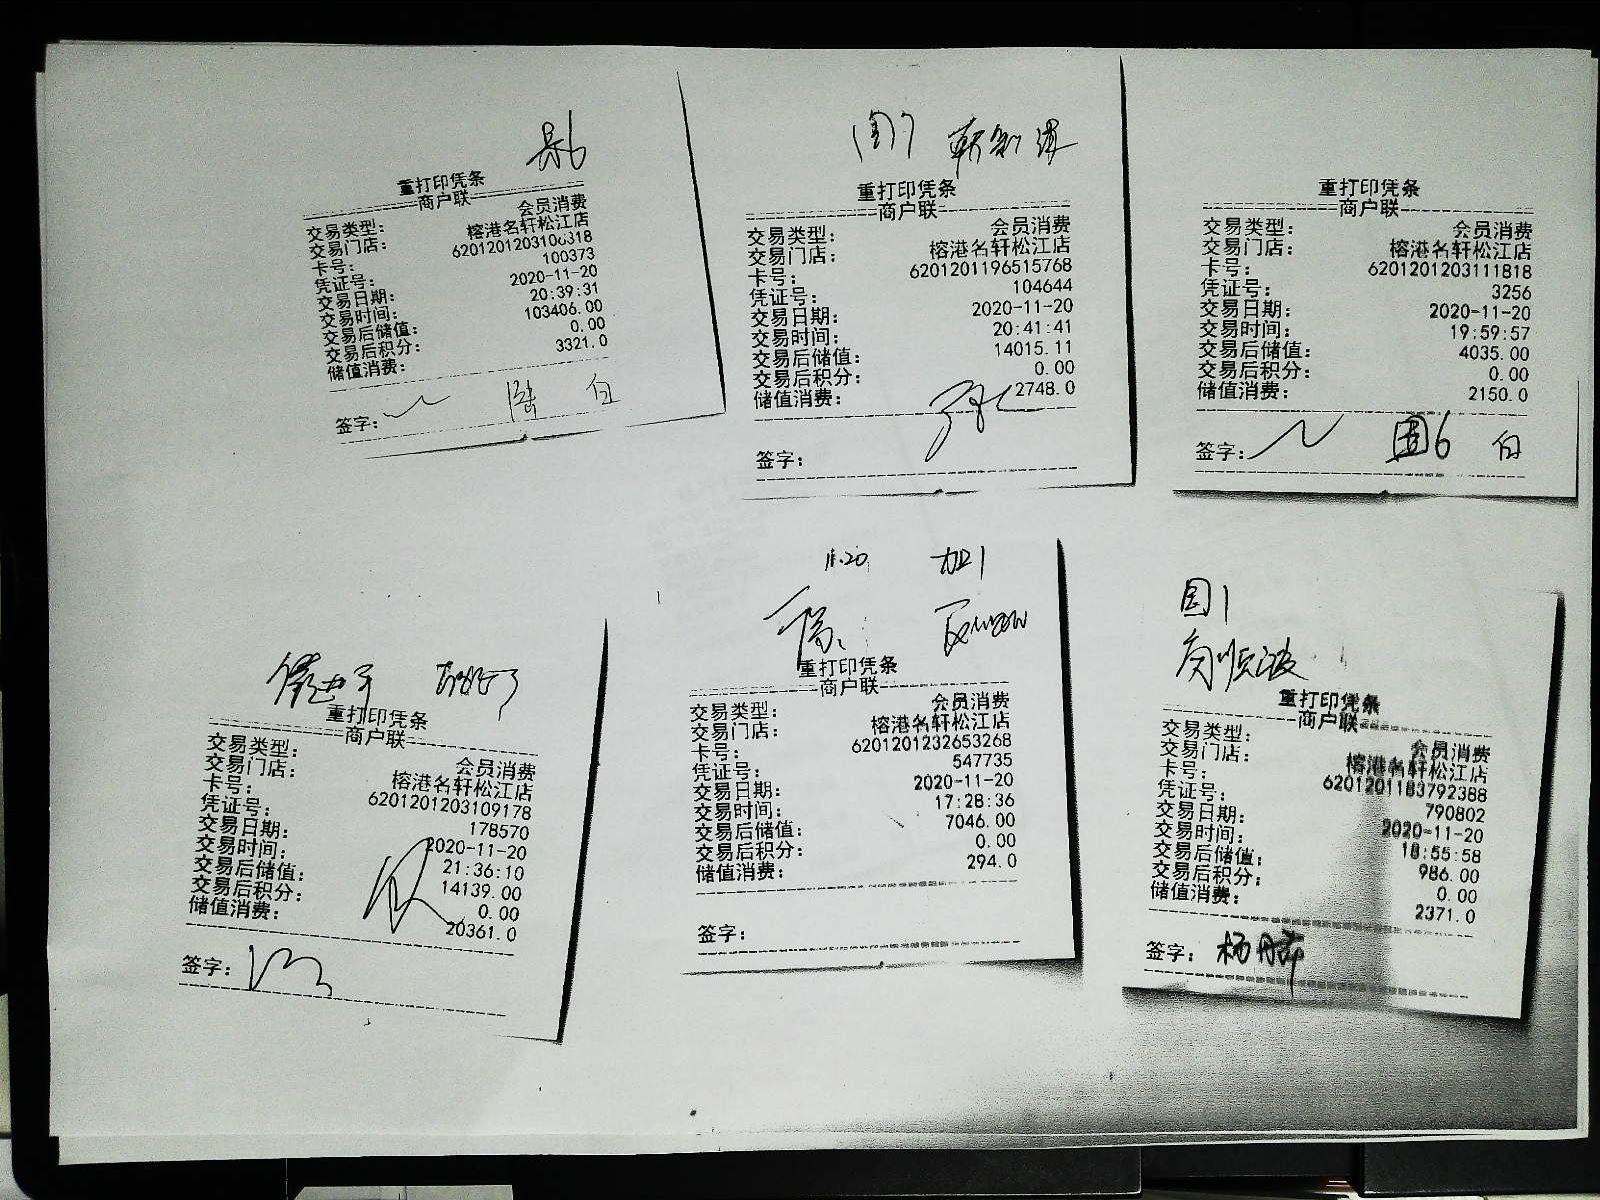 重打印凭条
商户联
交易类型: 会员消费
交易门店: 榕港名轩松江店
卡号:
凭证号: 100373
交易日期: 2020-11-20
交易时间: 20:39:31
交易后储值: 103406.00
交易后积分: 0.00
储值消费: 3321.0
签字: 白
重打印凭条
商户联
交易类型: 会员消费
交易门店: 榕港名轩松江店
卡号: 6201201196515768
凭证号: 104644
交易日期: 2020-11-20
交易时间: 20:41:41
交易后储值: 14015.11
交易后积分: 0.00
储值消费: 2748.0
签字:
重打印凭条
商户联
交易类型: 会员消费
交易门店: 榕港名轩松江店
卡号: 6201201203111818
凭证号: 3256
交易日期: 2020-11-20
交易时间: 19:59:57
交易后储值: 4035.00
交易后积分: 0.00
储值消费: 2150.0
签字: 白
重打印凭条
商户联
交易类型: 会员消费
交易门店: 榕港名轩松江店
卡号: 6201201203109178
凭证号: 178570
交易日期: 2020-11-20
交易时间: 21:36:10
交易后储值: 14139.00
交易后积分: 0.00
储值消费: 20361.0
签字:
11.20
重打印凭条
商户联
交易类型: 会员消费
交易门店: 榕港名轩松江店
卡号: 6201201232653268
凭证号: 547735
交易日期: 2020-11-20
交易时间: 17:28:36
交易后储值: 7046.00
交易后积分: 0.00
储值消费: 294.0
签字:
重打印凭条
商户联
交易类型: 会员消费
交易门店: 榕港名轩松江店
卡号: 6201201183792388
凭证号: 790802
交易日期: 2020-11-20
交易时间: 18:55:58
交易后储值: 986.00
交易后积分: 0.00
储值消费: 2371.0
签字: